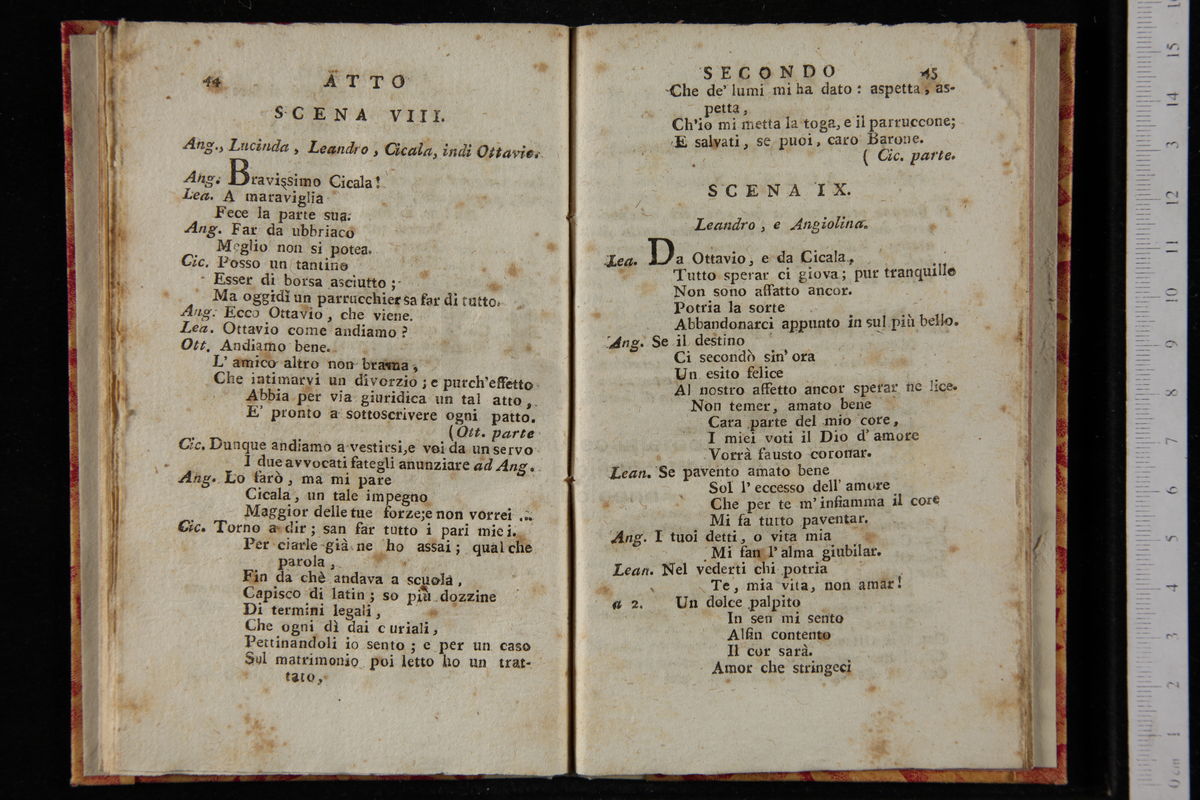 44 ATTO
SCENA VIII.
Ang., Lucinda, Leandro, Cicala, indi Ottavio.
Ang. Bravissimo Cicala!
Lea. A maraviglia
Fece la parte sua.
Ang. Far da ubbriaco
Meglio non si potea.
Cic. Posso un tantino
Esser di borsa asciutto;
Ma oggidì un parrucchier sa far di tutto.
Ang. Ecco Ottavio, che viene.
Lea. Ottavio come andiamo?
Ott. Andiamo bene.
L' amico altro non brama,
Che intimarvi un divorzio; e purch'effetto
Abbia per via giuridica un tal atto,
E' pronto a sottoscrivere ogni patto.
(Ott. parte
Cic. Dunque andiamo a vestirsi, e voi da un servo
I due avvocati fategli anunziare ad Ang.
Ang. Lo farò, ma mi pare
Cicala, un tale impegno
Maggior delle tue forze; e non vorrei ...
Cic. Torno a dir; san far tutto i pari miei.
Per ciarle già ne ho assai; qualche
parola,
Fin da chè andava a scuola,
Capisco di latin; so più dozzine
Di termini legali,
Che ogni dì dai curiali,
Pettinandoli io sento; e per un caso
Sul matrimonio poi letto ho un trat-
tato,
SECONDO 45
Che de' lumi mi ha dato: aspetta, as-
petta,
Ch'io mi metta la toga, e il parruccone;
E salvati, se puoi, caro Barone.
( Cic. parte.
SCENA IX.
Leandro, e Angiolina.
Lea. Da Ottavio, e da Cicala,
Tutto sperar ci giova; pur tranquillo
Non sono affatto ancor.
Potria la sorte
Abbandonarci appunto in sul più bello.
Ang. Se il destino
Ci secondò sin' ora
Un esito felice
Al nostro affetto ancor sperar ne lice.
Non temer, amato bene
Cara parte del mio core,
I miei voti il Dio d' amore
Vorrà fausto coronar.
Lean. Se pavento amato bene
Sol l' eccesso dell' amore
Che per te m' infiamma il core
Mi fa tutto paventar.
Ang. I tuoi detti, o vita mia
Mi fan l' alma giubilar.
Lean. Nel vederti chi potria
Te, mia vita, non amar!
a 2. Un dolce palpito
In sen mi sento
Alfin contento
Il cor sarà.
Amor che stringeci
0 cm 1 2 3 4 5 6 7 8 9 10 11 12 13 14 15 16